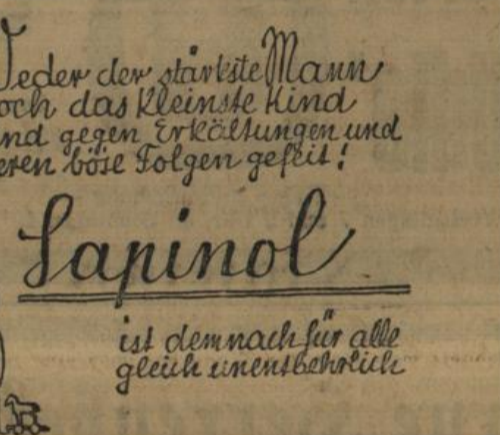 Weder der stärkste Mann
och das kleinste Kind
nd gegen Erkältungen und
eren böse Folgen gefeit!
Sapinol
ist demnach für alle
gleich unentbehrlich